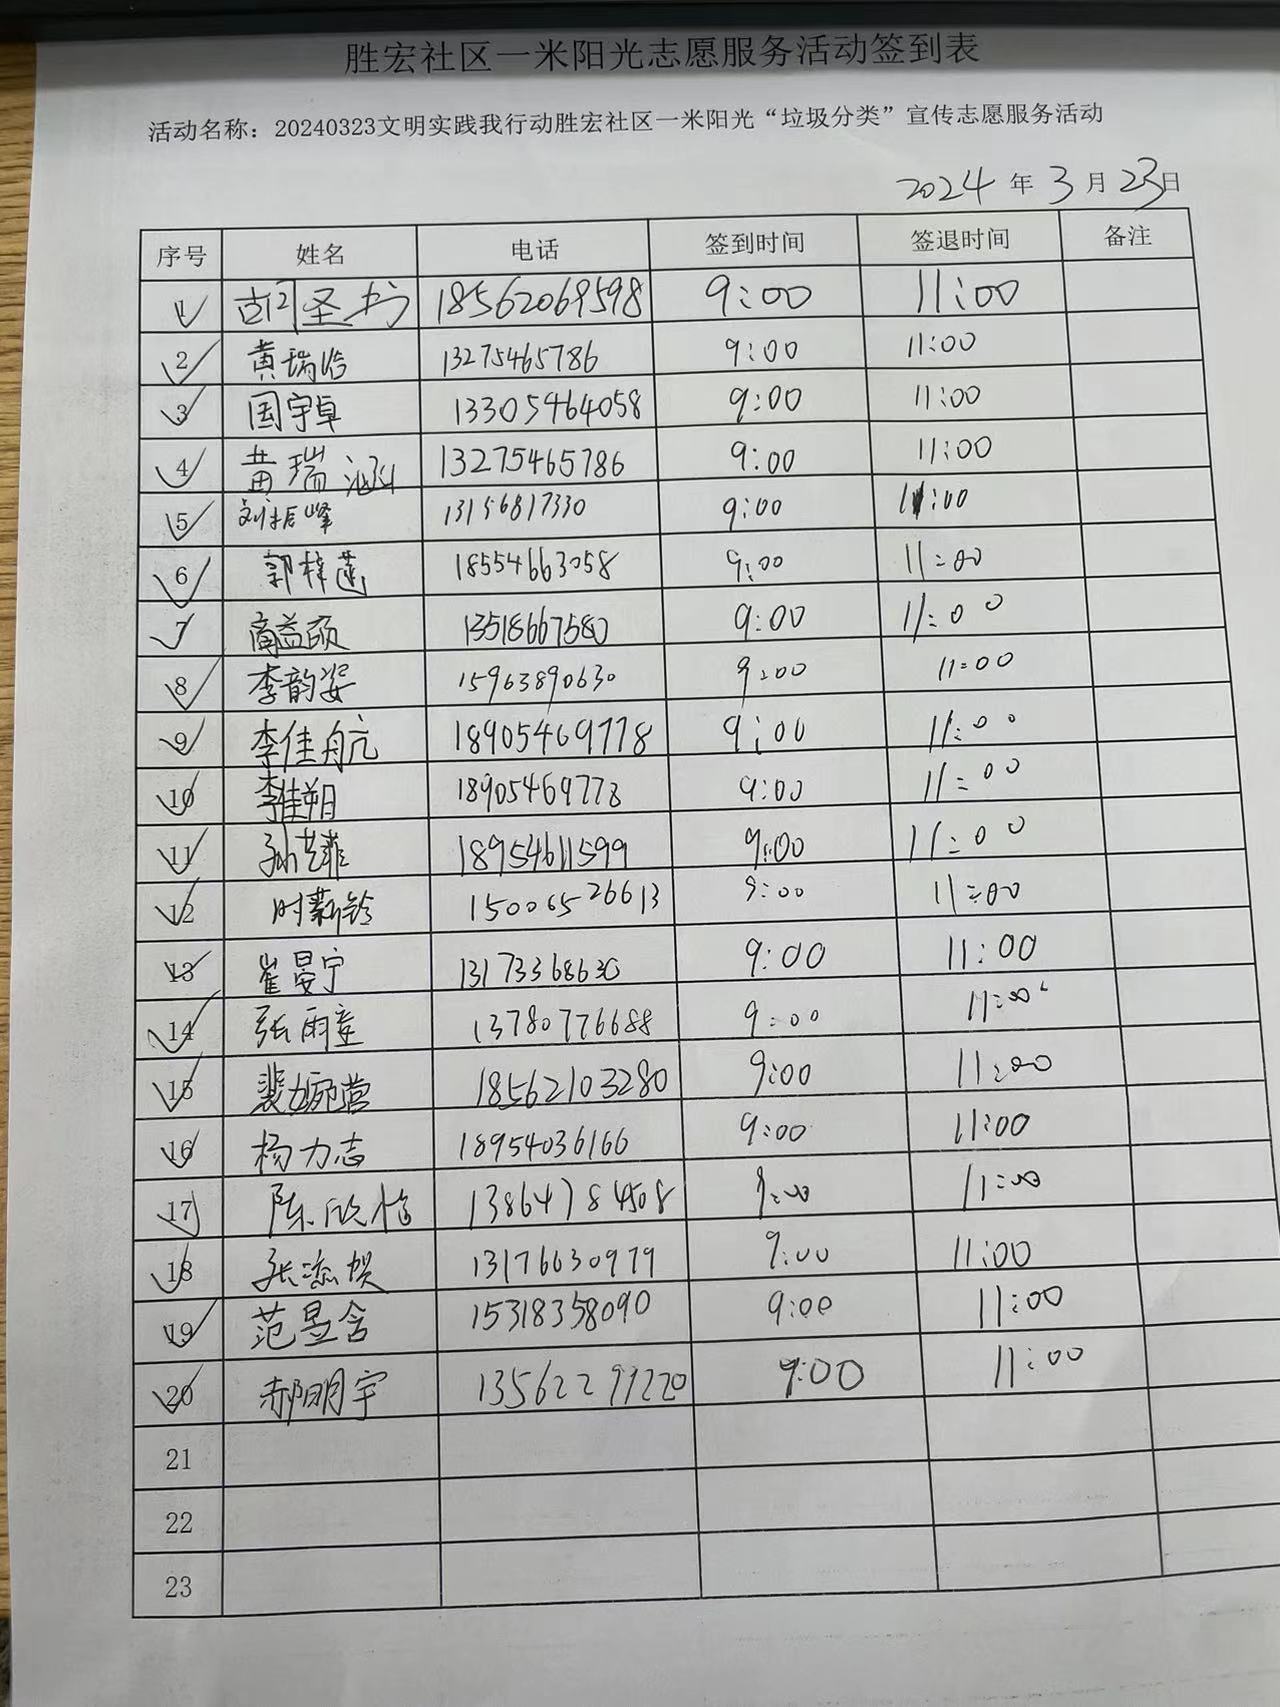 胜宏社区一米阳光志愿服务活动签到表
活动名称：20240323文明实践我行动胜宏社区一米阳光“垃圾分类”宣传志愿服务活动
2024 年 3 月 23日
序号 姓名 电话 签到时间 签退时间 备注
1 18562069598 9:00 11:00
2 黄瑞晗 13275465786 9:00 11:00
3 国宇卓 13305464058 9:00 11:00
4 黄瑞涵 13275465786 9:00 11:00
5 刘振峰 13156817330 9:00 11:00
6 郭梓莲 18554663058 9:00 11:00
7 13518667580 9:00 11:00
8 李韵姿 15963890630 9:00 11:00
9 李佳航 18905469778 9:00 11:00
10 李佳朔 18905469778 9:00 11:00
11 孙艺菲 18954611599 9:00 11:00
12 时薪铃 15006526613 9:00 11:00
13 崔晏宁 13173368630 9:00 11:00
14 张雨童 13780776688 9:00 11:00
15 18562103280 9:00 11:00
16 杨力志 18954036166 9:00 11:00
17 陈欣怡 13864784508 9:00 11:00
18 张添贺 13176630979 9:00 11:00
19 范昱含 15318358090 9:00 11:00
20 郝明宇 13562299220 9:00 11:00
21
22
23